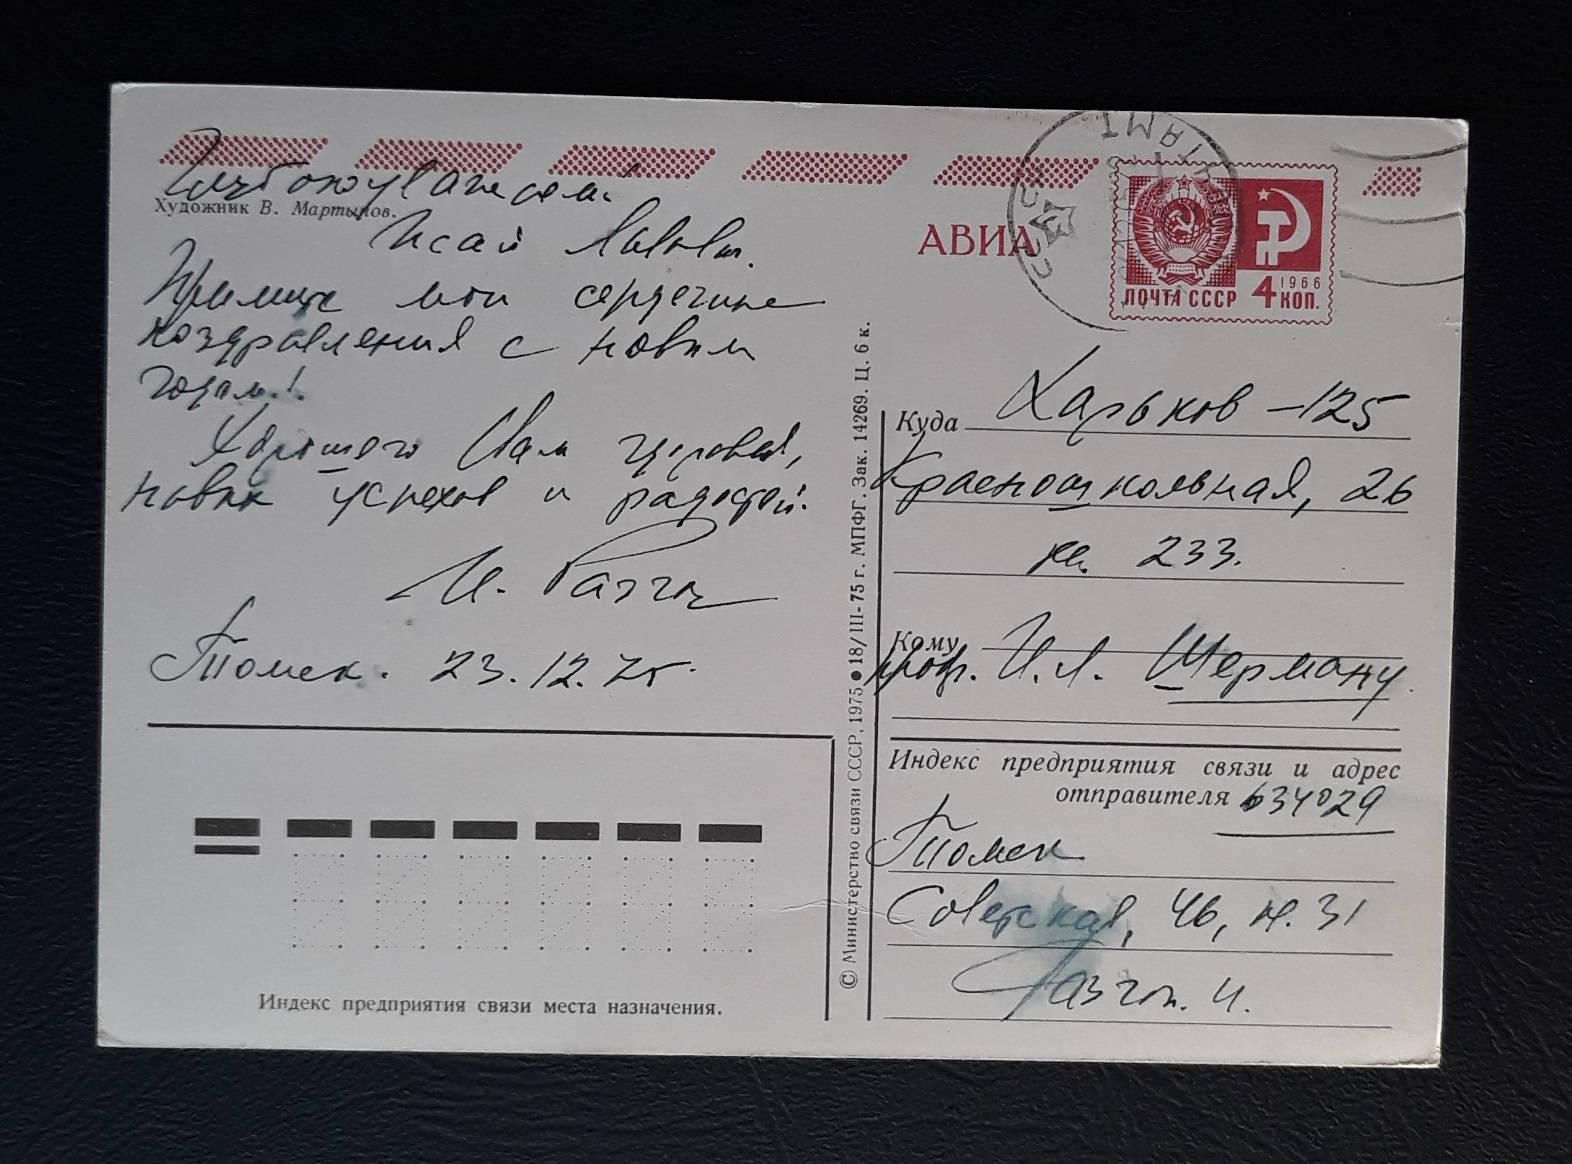 Глубокоуважаемый
Художник В. Мартынов.
Исай Львович.
Примите мои сердечные
поздравления с новым
годом!
Хорошего Вам здоровья,
новых успехов и радостей.
И. Разгон
Томск. 23.12.75.
Индекс предприятия связи места назначения.
© Министерство связи СССР, 1975 ● 18/III-75 г. МПФГ. Зак. 14269. Ц. 6 к.
АВИА
СССР
ПОЧТА СССР 4 КОП.
1966
Куда Харьков – 125
Красношкольная, 26
кв. 233.
Кому
проф. И. Л. Шерману
Индекс предприятия связи и адрес
отправителя 634029
Томск
Советская, 46, к. 31
Разгон. И.